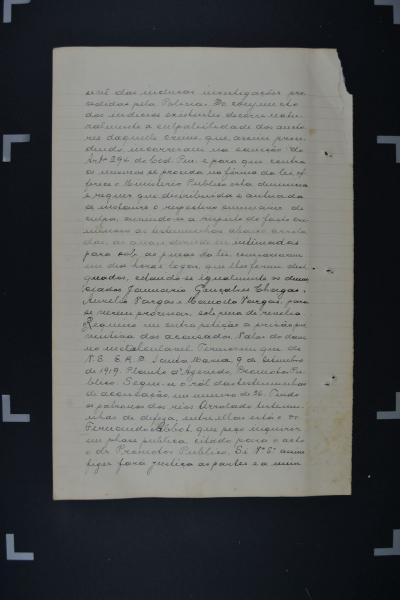 das mesmas investigações pro
cedidas pela Policia. Do conjuncto
dos indicios existentes decorre natu
ralmente a culpabilidade dos auto
res daquelle crime, que assim proce
dendo incorreram na sancção do
Art° 294 do Cod. Pen. e para que contra
os mesmos se proceda na fórma da lei, of
ferece o Ministerio Publico esta denuncia
e requer que distribuida e autuada
se instaure o respectivo summario de
culpa, ouvindo-se a respeito do facto cri
minoso as testemunhas abaixo arrola
das, as quaes deverão ser intimadas
para sob as penas da lei, comparecerem
em dia hora e logar, que lhes forem desi
gnados, citando-se igualmente os denun
ciados Januario Gonçalves Chagas,
Aurelio Vargas e Manoel Vargas, para
se verem processar, sob pena de revelia.
Requeiro em outra petição a prisão pre
ventiva dos accusados. Valor do damno
Termos em que
N.E. E.R.D. Santa Maria, 9 de Setembro
de 1919. d'Azevedo, Promotor Pu
blico. Segue-se o ról das testemunhas
de accusação em numero de Tendo
os patronos dos réos arrolado testemu
nhas de defeza, entre ellas está o Dr
Fernando Abbot, que peço inquirir
em plena publica, citado para o acto
o dr. Promotor Publico. Si V° S° assim
fizer fará justiça ás partes e a mim